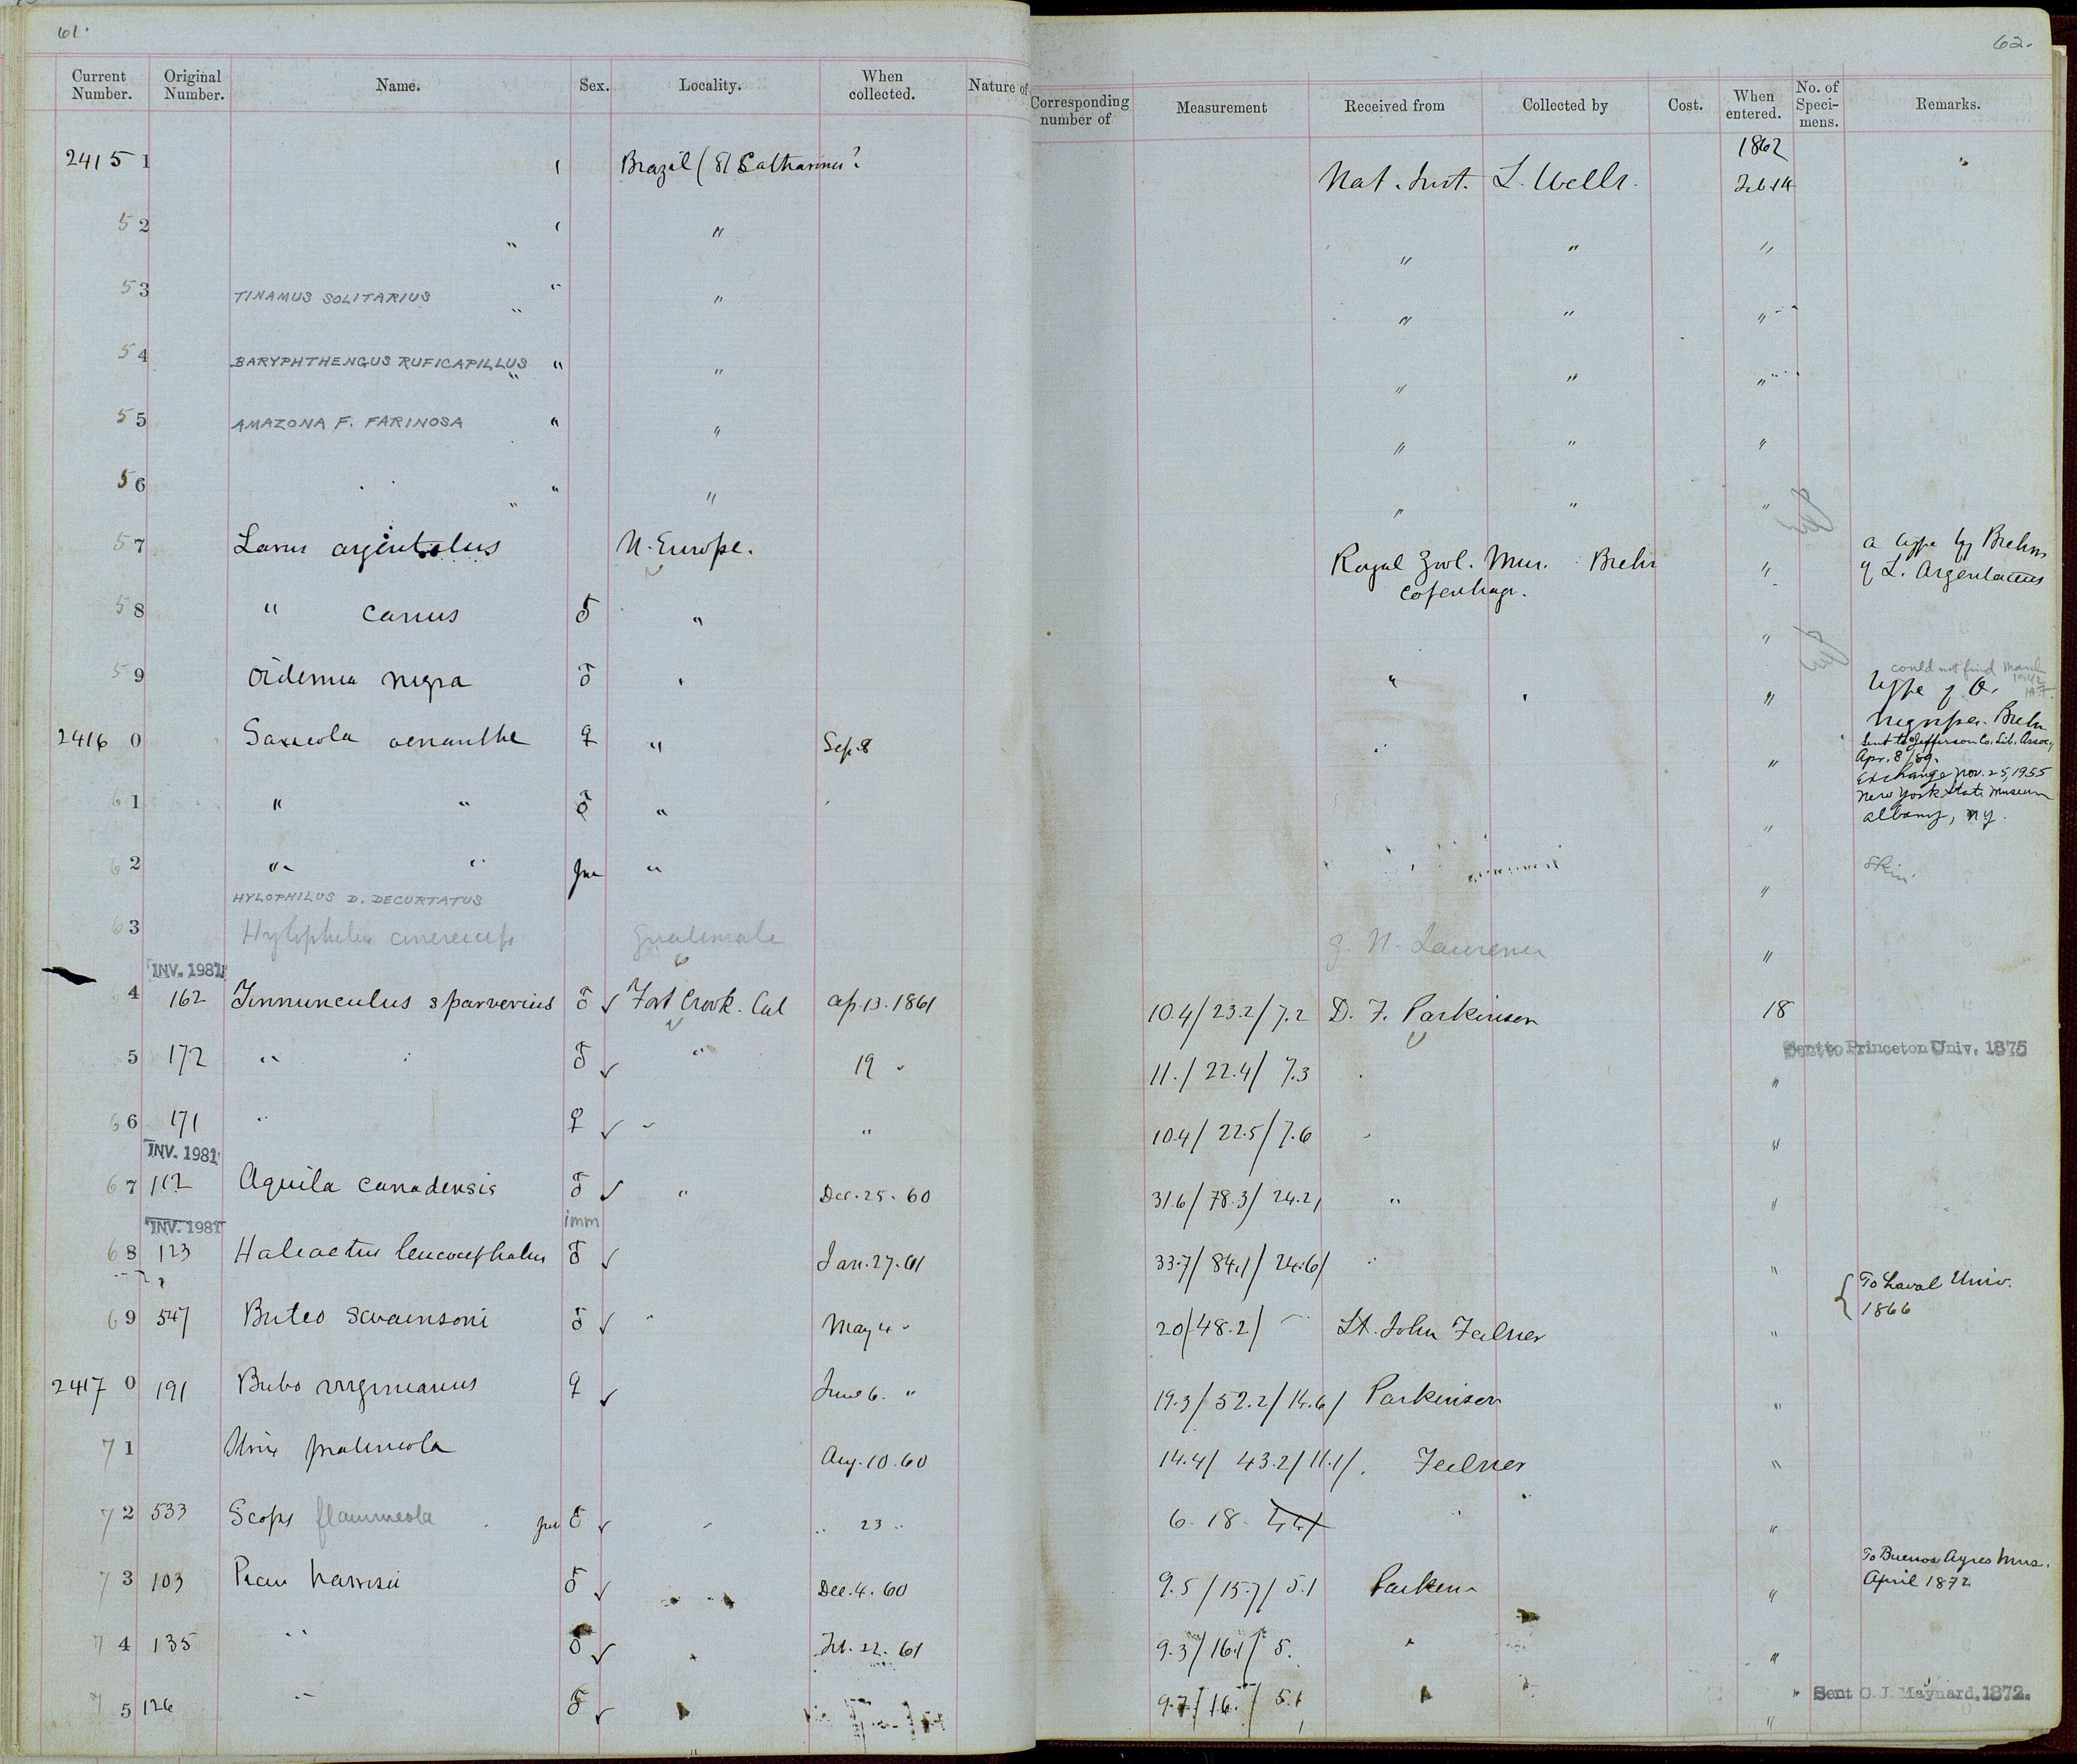 61.
62.
Current Number. Original Number. Name. Sex. Locality. When collected. Nature of
Corresponding number of Measurement Received from Collected by Cost. When entered. No. of Specimens. Remarks.
24151 Brazil ( Nat. Inst. 1862 Feb 14
52 " " " " "
53 TINAMUS SOLITARIUS " " " " " "
54 BARYPHTHENGUS RUFICAPILLUS " " " " " "
55 AMAZONA F. FARINOSA " " " " "
56 " " " " " "
57 Larus N. Europe. Royal Zool. Mus. Copenhag. " a type by Brehm of L. Argentaceus
58 " canus ♂ " "
59 Oidemia nigra ♂ " " " could not find March 1942 Type of O. Brehm
24160 Saxicola oenanthe ♀ " Sep. 8 " " Sent to Jefferson Co. Lib. Assoc., Apr. 8/69.
Exchange Nov. 25, 1955 New York State Museum Albany, NY.
61 " " ♂ " "
62 " " " " Skin
HYLOPHILUS D. DECURTATUS
63 Hylophilus Guatemala G. N. Lawrence "
INV. 1981
4 162 Tinnunculus sparverius ♂ ✓ Fort Crook. Cal Ap. 13. 1861 10.4/23.2/7.2 D. F. Parkinson 18
5 172 " ♂ ✓ " 19 11./22.4/7.3 " Sent to Princeton Univ. 1875
66 171 " ♀ ✓ " " 10.4/22.5/7.6 "
INV. 1981
67 112 Aquila canadensis ♂ ✓ " Dec. 25. 60 31.6/78.3/24.2/ " "
INV. 1981 imm
68 123 Haliaetus leucocephalus ♂ ✓ Jan. 27. 61 33.7/84.1/24.6/ "
69 547 Buteo swainsoni ♂ ✓ " May 4 " 20/48.2/ Lt. John Feilner " { To Laval Univ. 1866
24170 191 Bubo virginianus ♀ ✓ June 6. " 19.3/52.2/14.6/ Parkinson "
71 Aug. 10. 60 14.4/43.2/11.1/. Feilner "
72 533 Scops flammeola ♂ ✓ " 23 " 6. 18. "
73 103 Picus harrisii ♂ ✓ Dec. 4. 60 9.5/15.7/5.1 " To Buenos Ayres Mus. April 1872
74 135 " ♂ ✓ " Feb. 22. 61 9.3/16.1/5. " "
75 126 " ♂ ✓ 9.7/16. / 5.1 " Sent C. J. Maynard, 1872.